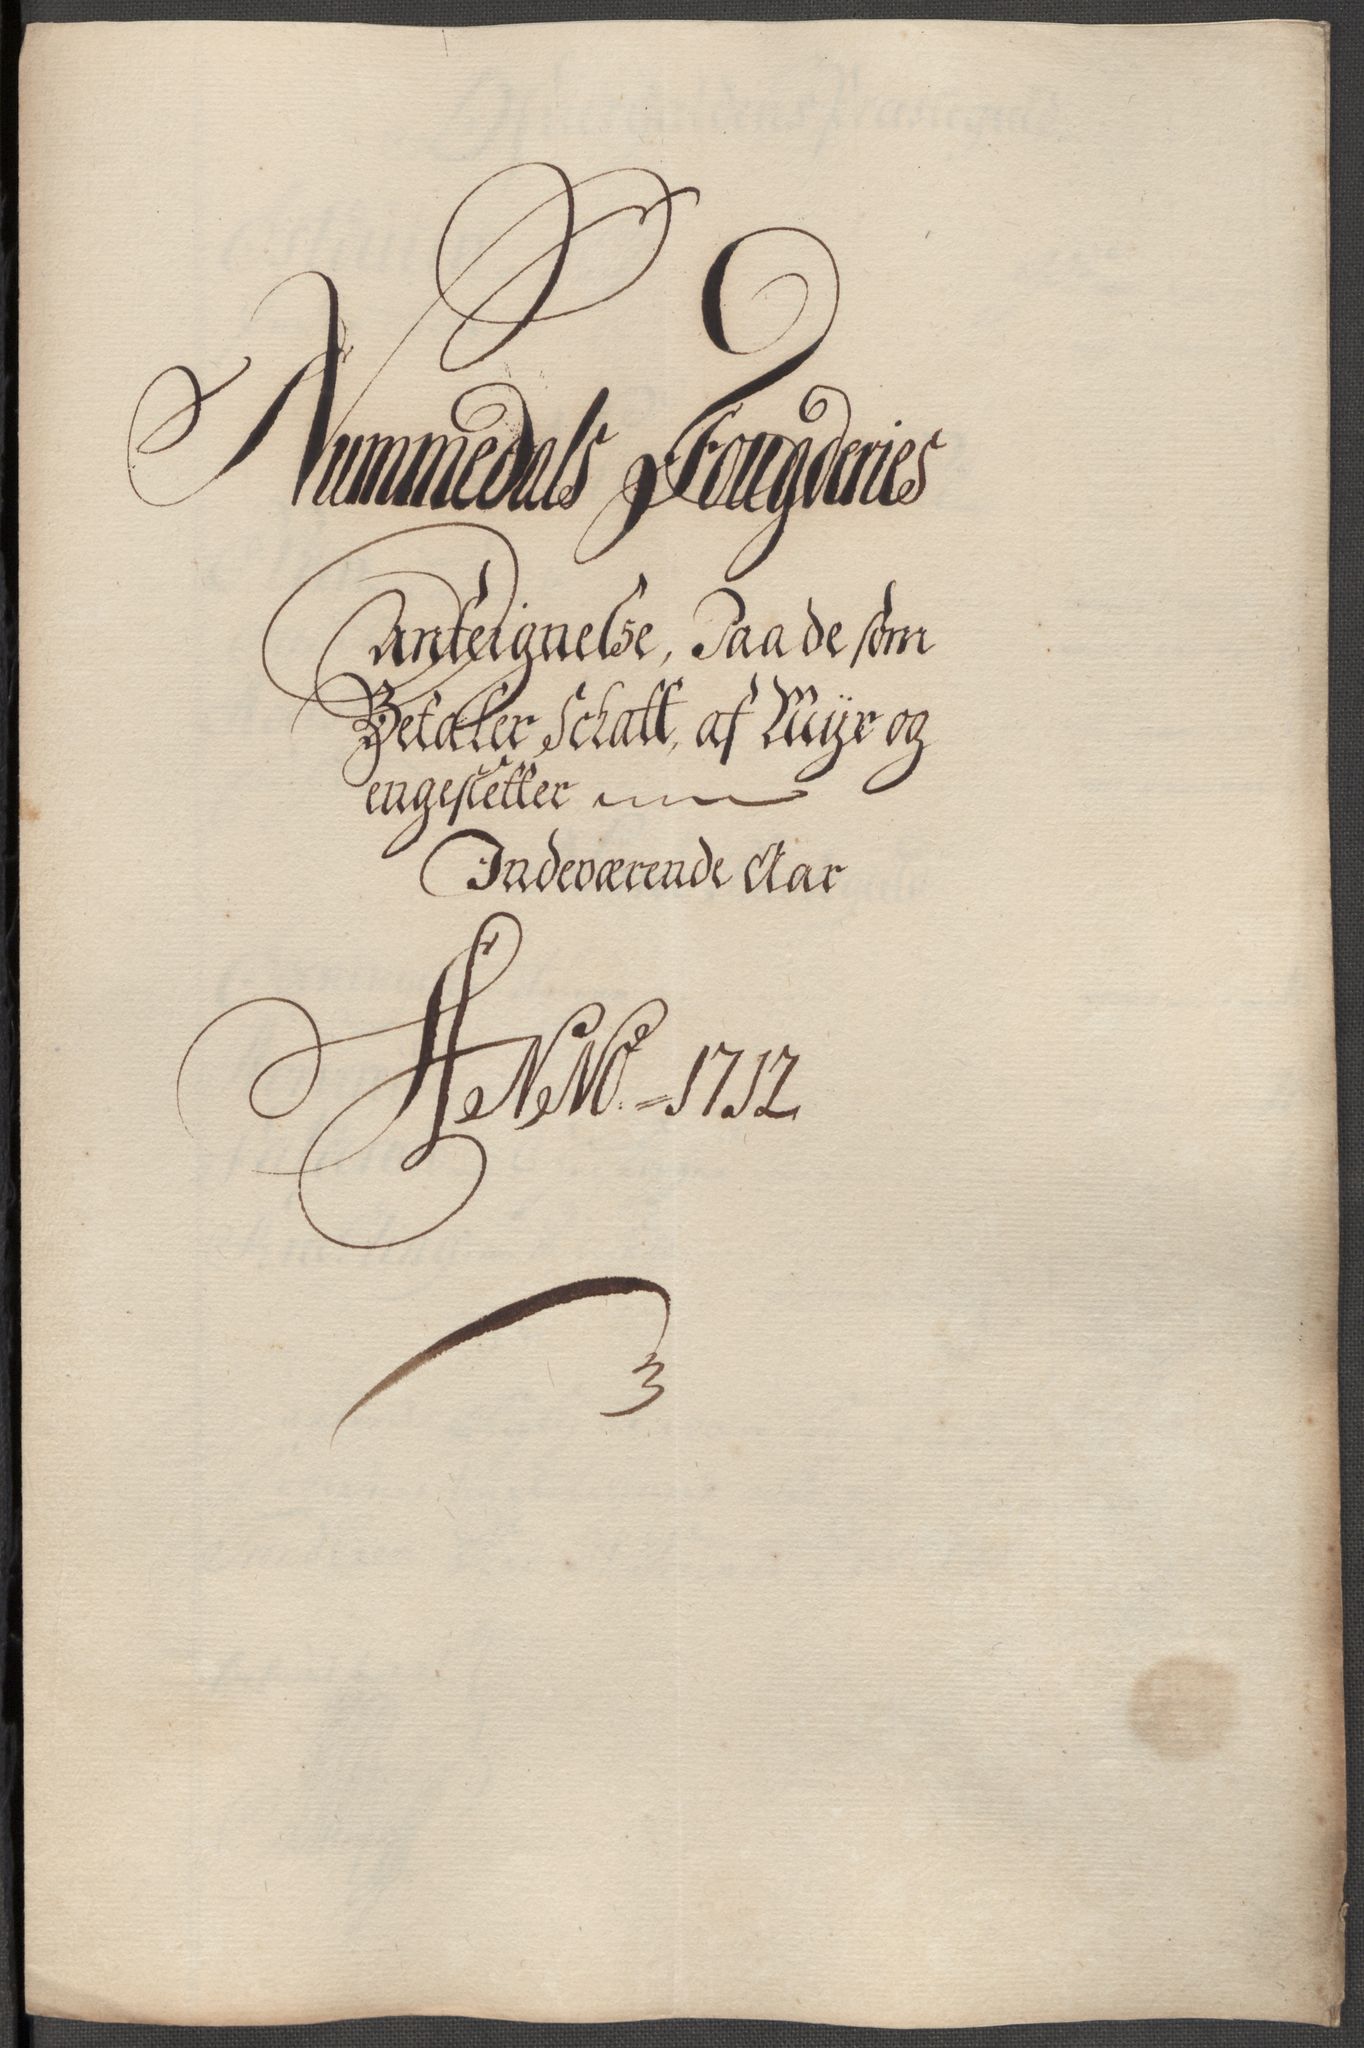 Nummedals Fougderies
Anteignelse, Paa de som
Betaler Schatt, af Myr og
engesletter
Indeværende Aar
ANNO. 1712